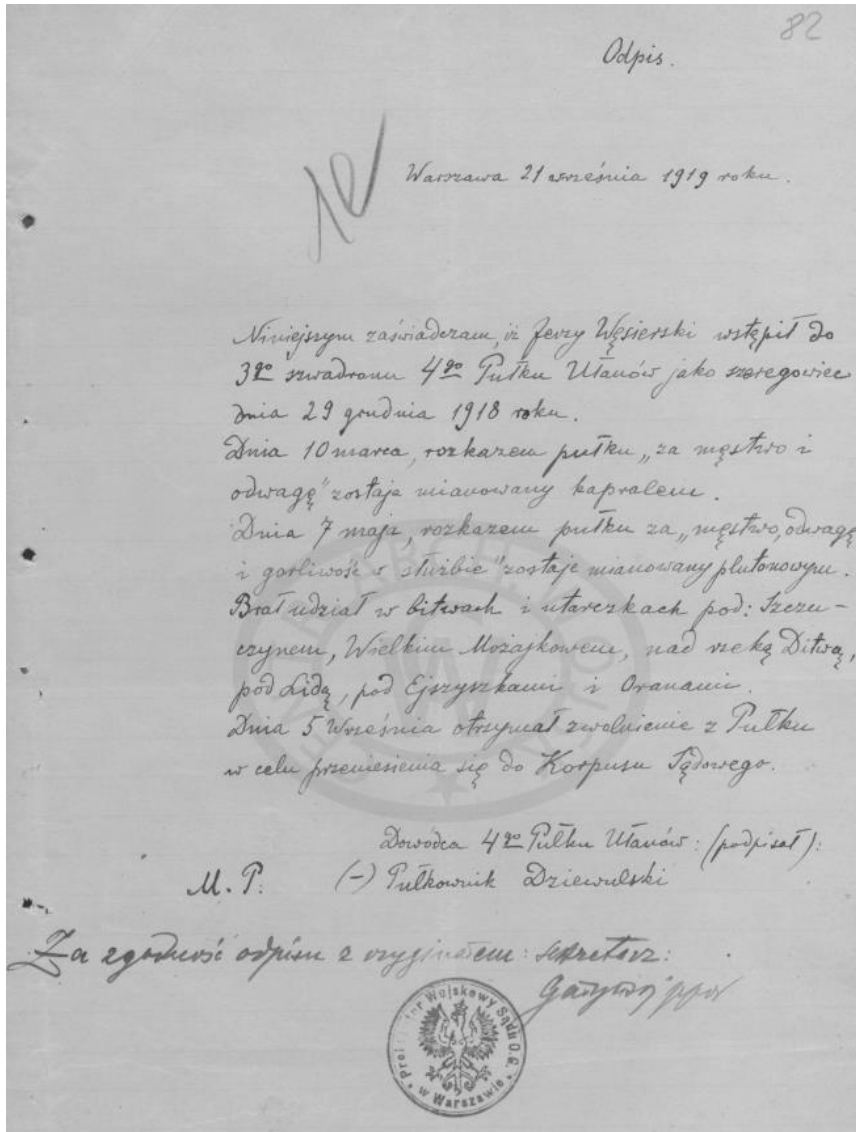 82
Odpis.
Warszawa 21 września 1919 roku.
Niniejszym zaświadczam, iż Jerzy Węsierski wstąpił do
3go szwadronu 4go Pułku Ułanów jako szeregowiec
dnia 29 grudnia 1918 roku.
Dnia 10 marca, rozkazem pułku „za męstwo i
odwagę" zostaje mianowany kapralem.
Dnia 7 maja, rozkazem pułku za „męstwo, odwagę
i gorliwość w służbie" zostaje mianowany plutonowym.
Brał udział w bitwach i utarczkach pod: Szczu-
czynem, Wielkim Możajkowem, nad rzeką Ditwą,
pod Lidą, pod Ejszyszkami i Oranami.
Dnia 5 Września otrzymał zwolnienie z Pułku
w celu przeniesienia się do Korpusu Sądowego.
Dowódca 4go Pułku Ułanów: (podpisał):
M. P. (-) Pułkownik Dziewulski
Za zgodność odpisu z oryginałem: sekretarz:
Wojskowy Sądu O.G.
w Warszawie